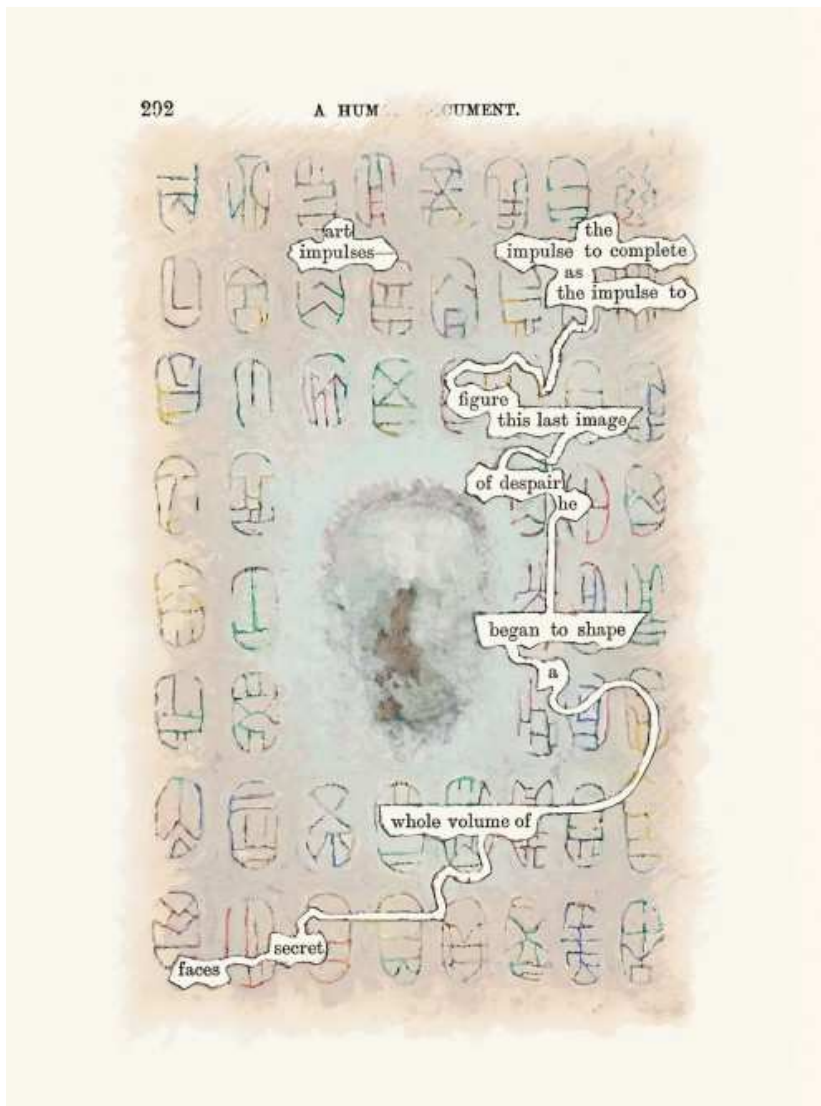 292
A HUM CUMENT.
art
impulses
the
impulse to complete
as
the impulse to
figure
this last image
of despair
he
began to shape
a
whole volume of
secret
faces